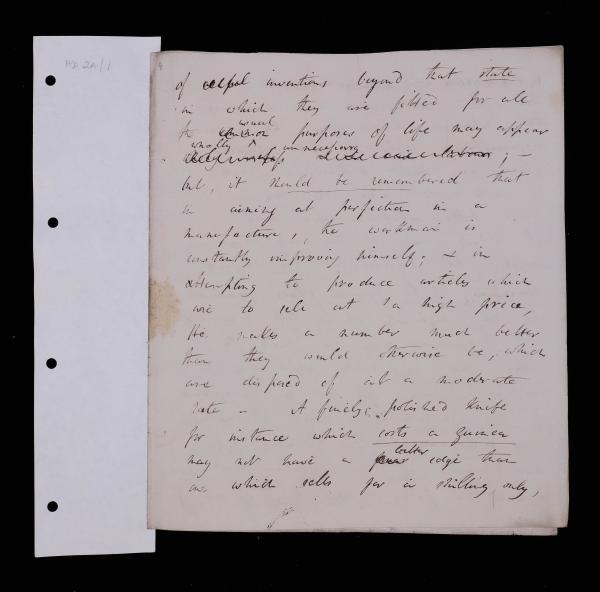 HD 2A/1
of useful inventions beyond that state
in which they are fitted for all
the common usual purposes of life may appear
wholly unnecessary ; —
but, it should be remembered that
in aiming at perfection in a
manufacture, the workman is
constantly improving himself. & in
attempting to produce articles which
are to sell at a high price,
He makes a number much better
than they would otherwise be, which
are disposed of at a moderate
rate — A finely polished knife
for instance which costs a guinea
may not have a better edge than
one which sells for a shilling only,